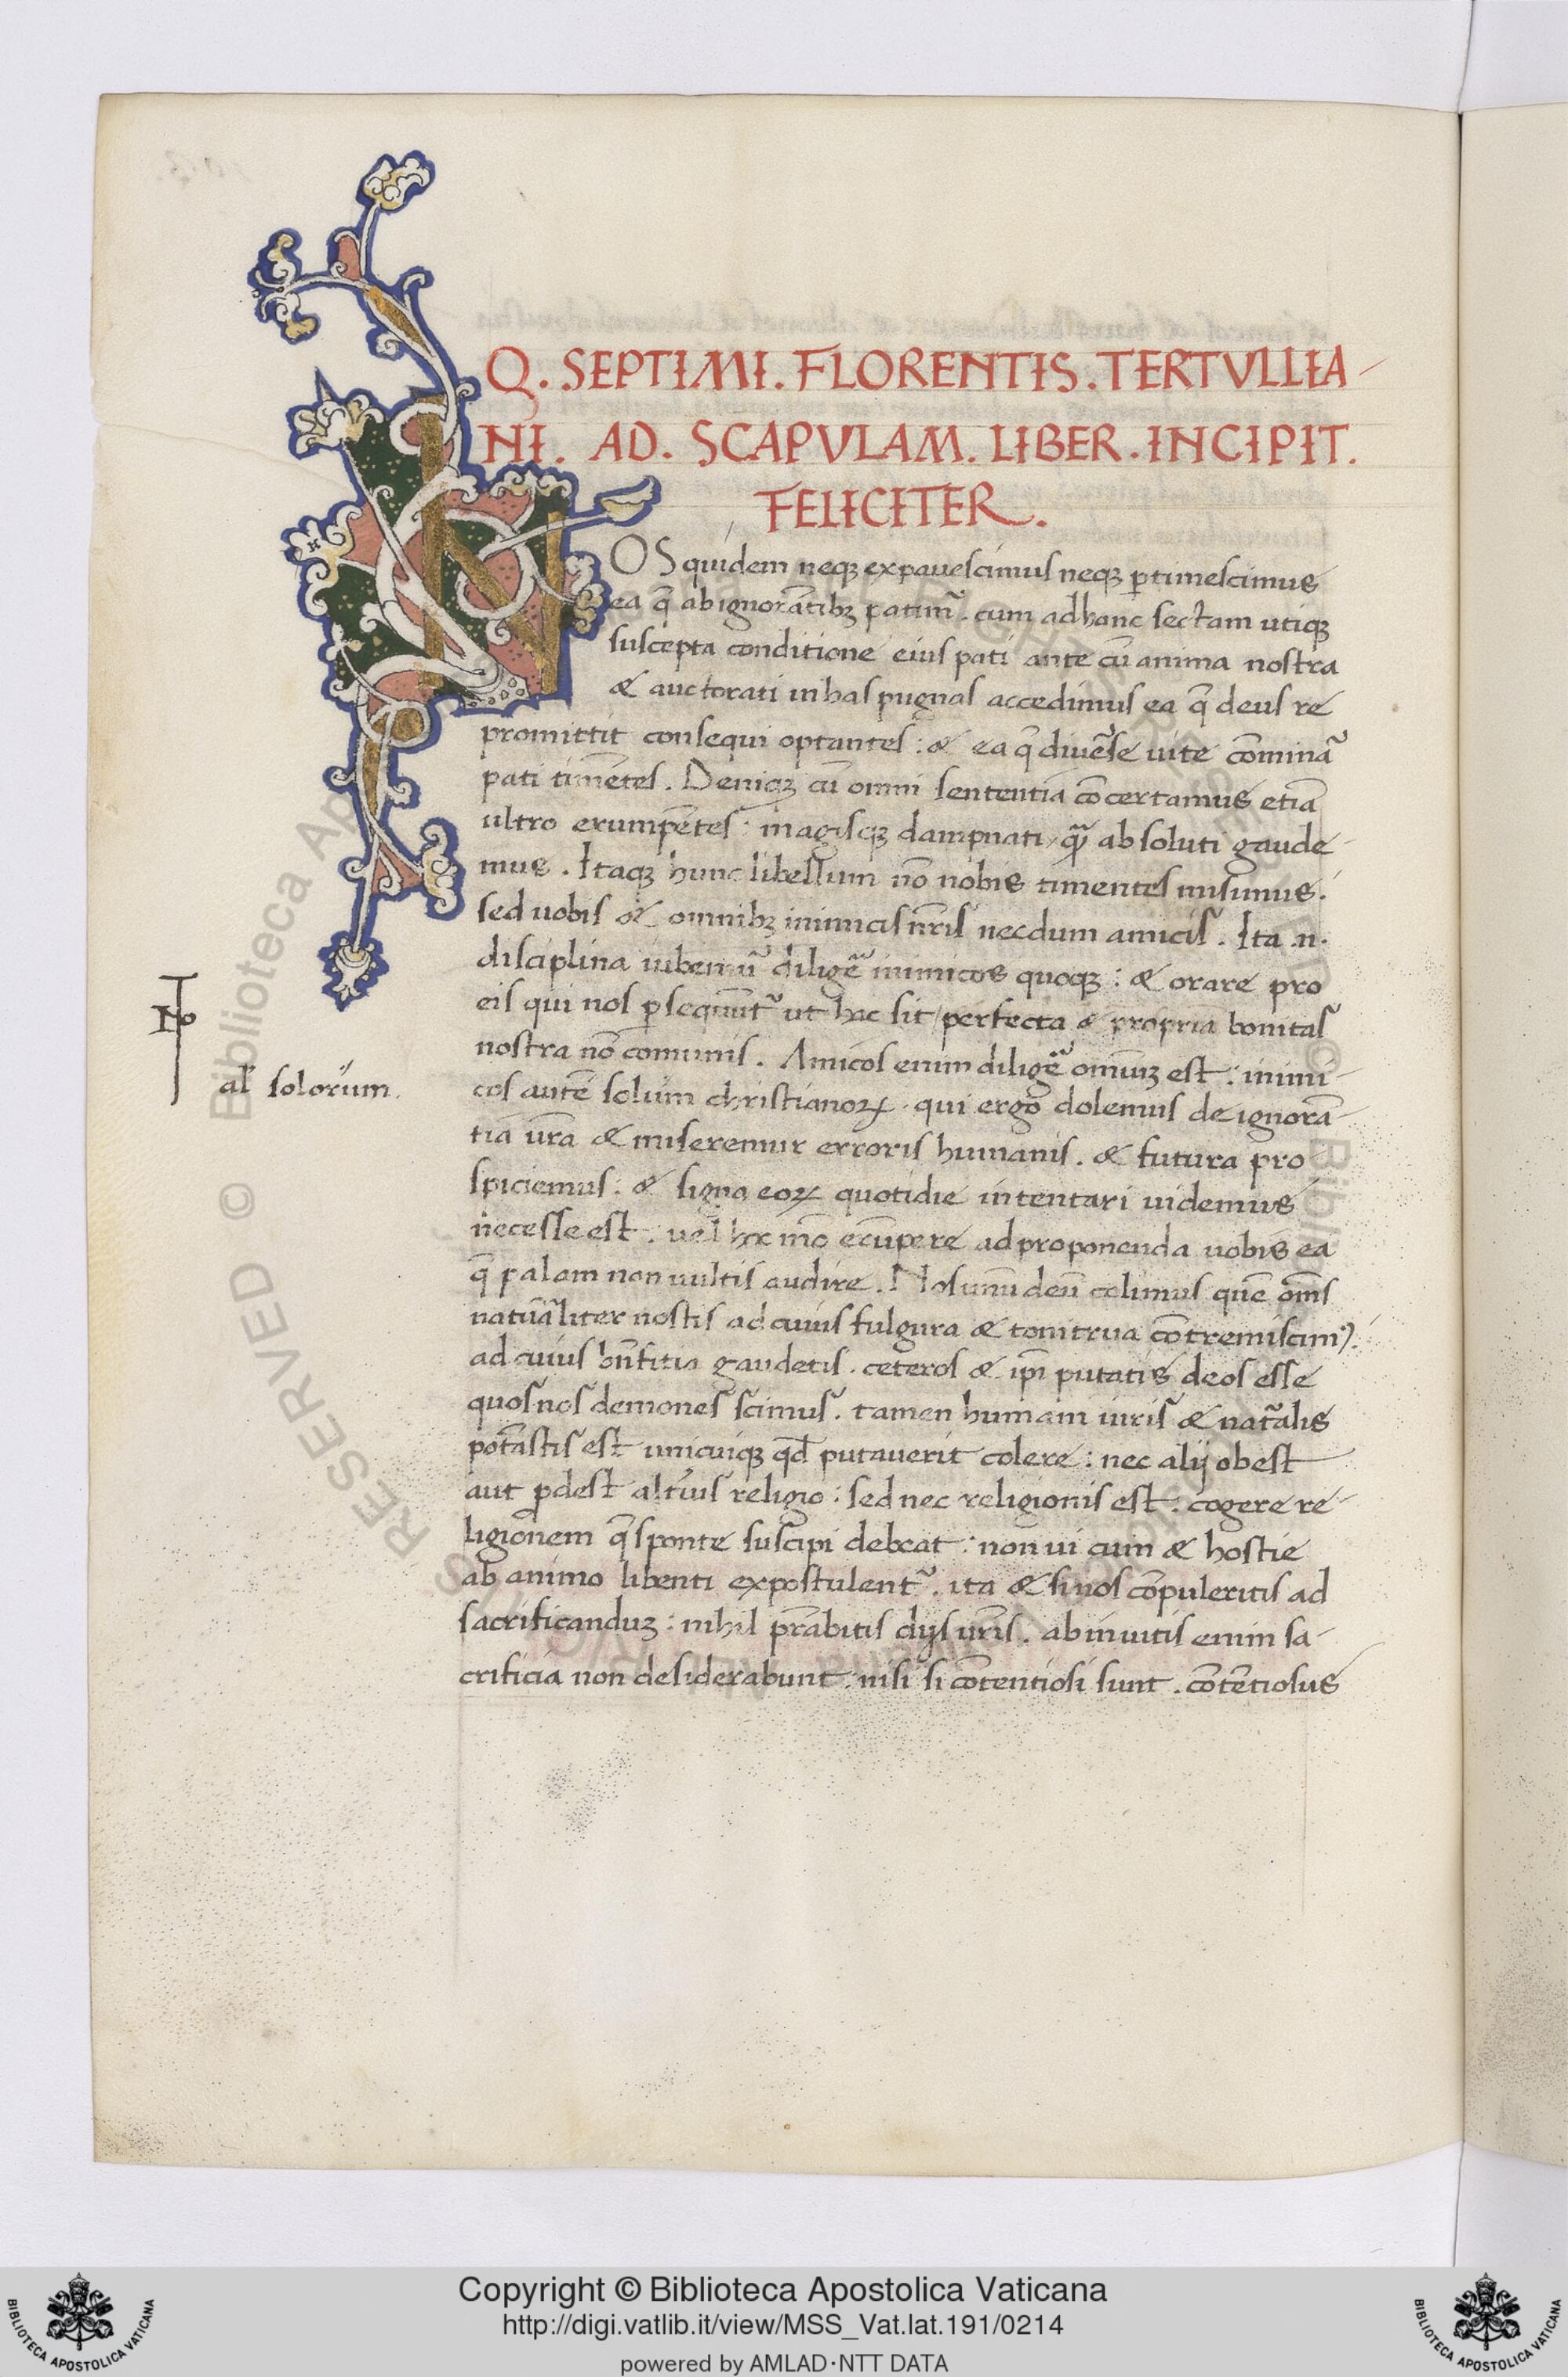 Q. SEPTIMI. FLORENTIS. TERTVLLIA-
NI. AD. SCAPVLAM. LIBER. INCIPIT.
FELICITER.
NOS quidem neq; expauescimus neq; ꝑtimescimus
ea q̄ ab ignorātibꝫ patimr̃. cum ad hanc sectam utiqꝫ
suscepta conditione eius pati ante cū anima nostra
& auctorati in has pugnas accedimus ea q̄ deus re
promittit consequi optantes: & ea q̄ diuēse uite cōminar̃
pati timētes. Deniqꝫ cū omni sententia cōcertamus etiā
ultro erumpētes: magisqꝫ dampnati, qᷓ absoluti gaude-
mus. Itaqꝫ hunc libellum nō nobis timentes misimus.
sed uobis & omnibꝫ inimicis nr̄is necdum amicis. Ita .n.
disciplina iubemur̃ diligẽ inimicos quoqꝫ: & orare pro
eis qui nos ꝑsequūtr̃ ut hac sit perfecta & propria bonitas
nostra nō comunis. Amicos enim diligẽ omniuꝫ est: inimi-
cos autē solum christianoꝝ. qui ergo dolemus de ignorā-
tia ur̄a & miseremur erroris humanis. & futura pro-
spiciemus. & signa eoꝝ quotidie intentari uidemus
necesse est. uel hoc mō erūpere ad proponenda uobis ea
q̄ palam non uultis audire. Nos unū deū colimus quē oms̄
natūaliter nostis ad cuius fulgura & tonitrua cōtremiscim⁹.
ad cuius bn̄fitia gaudetis. ceteros & ipī putatis deos esse
quos nos demones scimus. tamen humani iuris & natālis
potāstis est unicuiqꝫ qd̄ putauerit colere: nec alij obest
aut ꝓdest altius religio: sed nec religionis est. cogere re-
ligionem q̄ sponte suscipi debeat: non ui cum & hostie
ab animo libenti expostulentr̃. ita & si nos cōpuleritis ad
sacrificanduꝫ: nihil pr̄abitis dijs ur̄is. ab inuitis enim sa-
crificia non desiderabunt: nisi si cōtentiosi sunt. cōtētiosus
No
al' solorum.
Copyright © Biblioteca Apostolica Vaticana
http://digi.vatlib.it/view/MSS_Vat.lat.191/0214
powered by AMLAD·NTT DATA
BIBLIOTECA APOSTOLICA VATICANA
BIBLIOTECA APOSTOLICA VATICANA